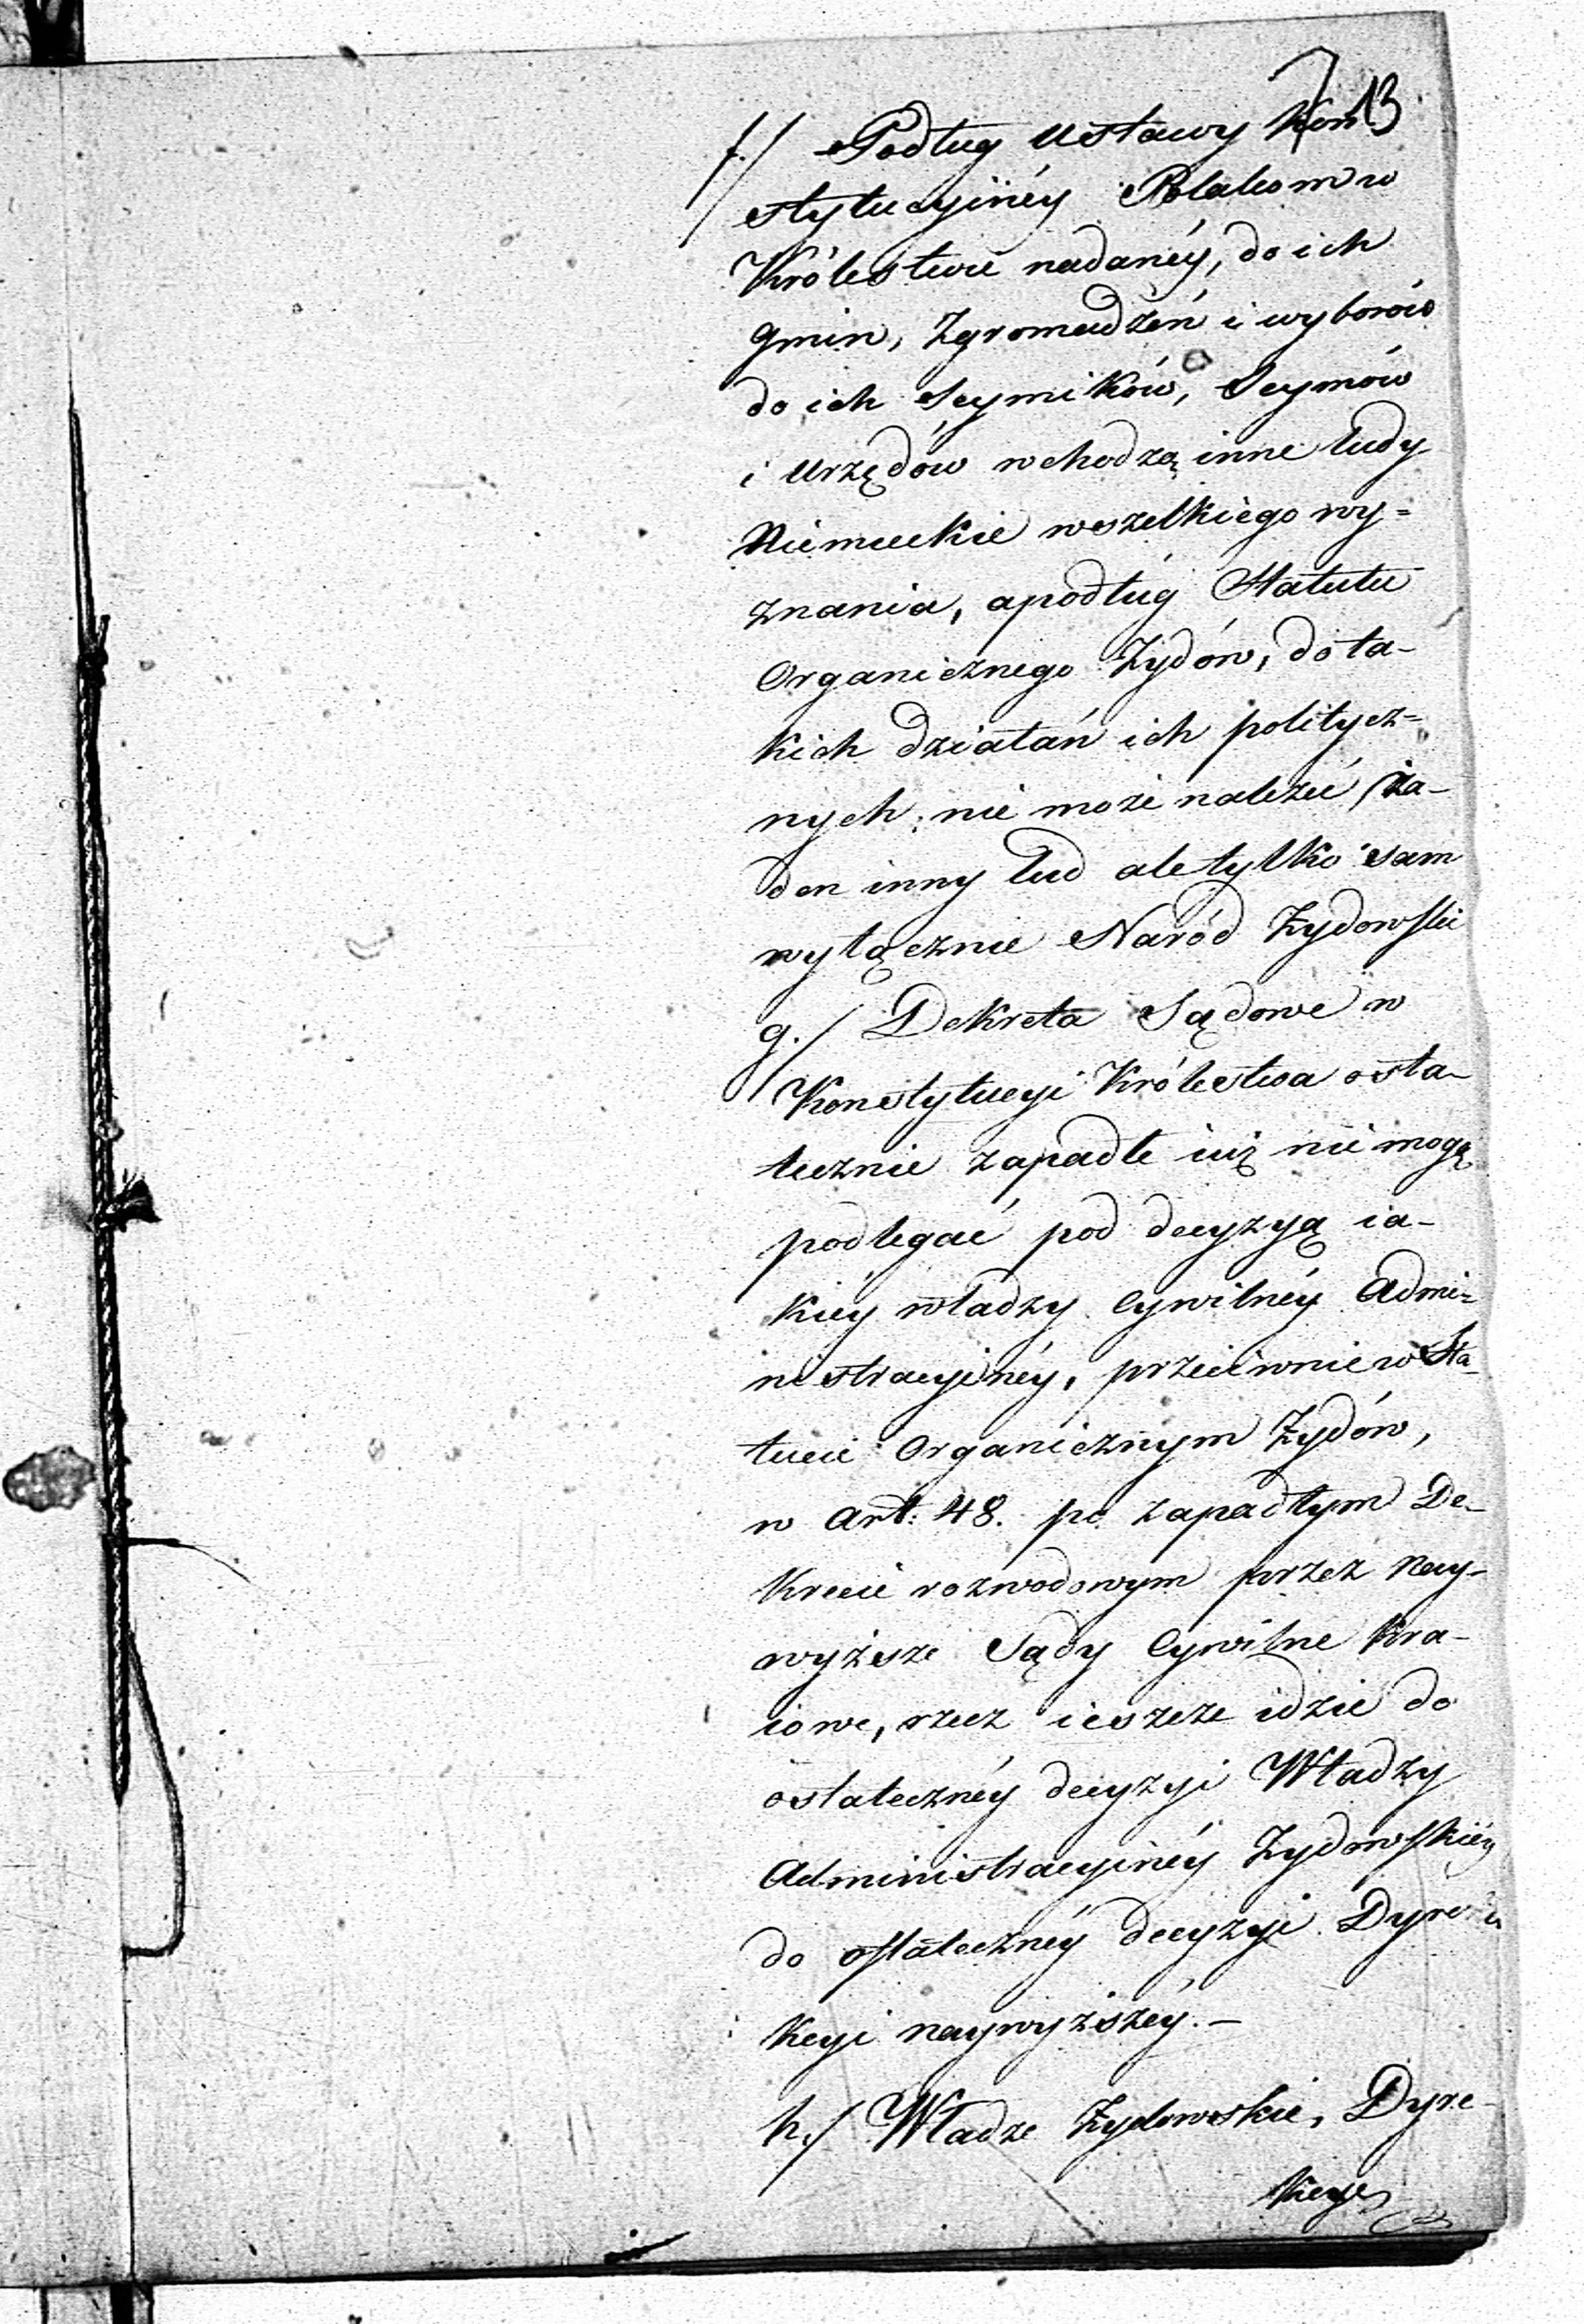 13
f./ Podług Ustawy Kon
stytucyinéy Polakom w
Królestwie nadanéy, do ich
gmin, Zgromadzeń i wyborów
do ich Seymików, Seymów
i Urzędów wchodzą inne ludy
Niemieckie wszelkiego wy=
znania, a podług Statutu
Organicznego Żydów, do ta-
kich działań ich politycz=
nych, nie może należeć ża-
den inny lud ale tylko sam
wyłącznie Naród Żydowski
g./ Dekreta Sądowe w
Konstytucyi Królestwa osta-
tecznie zapadłe iuż nie mogą
podlegać pod decyzyą ia-
kiéy władzy Cywilnéy Admi=
nistracyinéy, przeciwnie w Sta-
tucie Organicznym Żydów,
w Art: 48. po zapadłym De-
krecie rozwodowym przez Nay-
wyższe Sądy Cywilne Kra-
iowe, rzecz ieszcze idzie do
ostatecznéy decyzyi Władzy
Administracyinéy Żydowskiéy
do ostatecznéy decyzyi Dyre
kcyi naywyższéy.-
h./ Władze Żydowskie, Dyre-
kcye